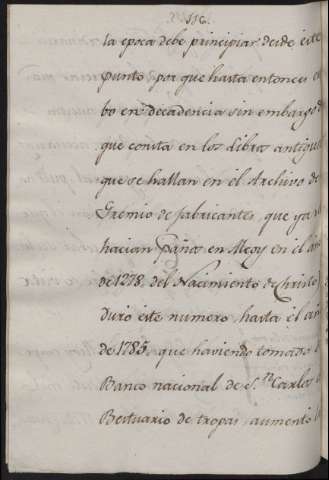 116.
la epoca debe principiar desde este
punto por que hasta entonces
bo en decadencia sin embargo
que consta en los libros antiguo
que se hallan en el Archivo de
Gremio de fabricantes, que ya
hacian Paños en Alcoy en el
de 1278, del Nacimiento de Christo
duró este numero hasta el
de 1785, que haviendo tomado
Banco nacional de S.n Carlos
Bestuario de tropas, aumento